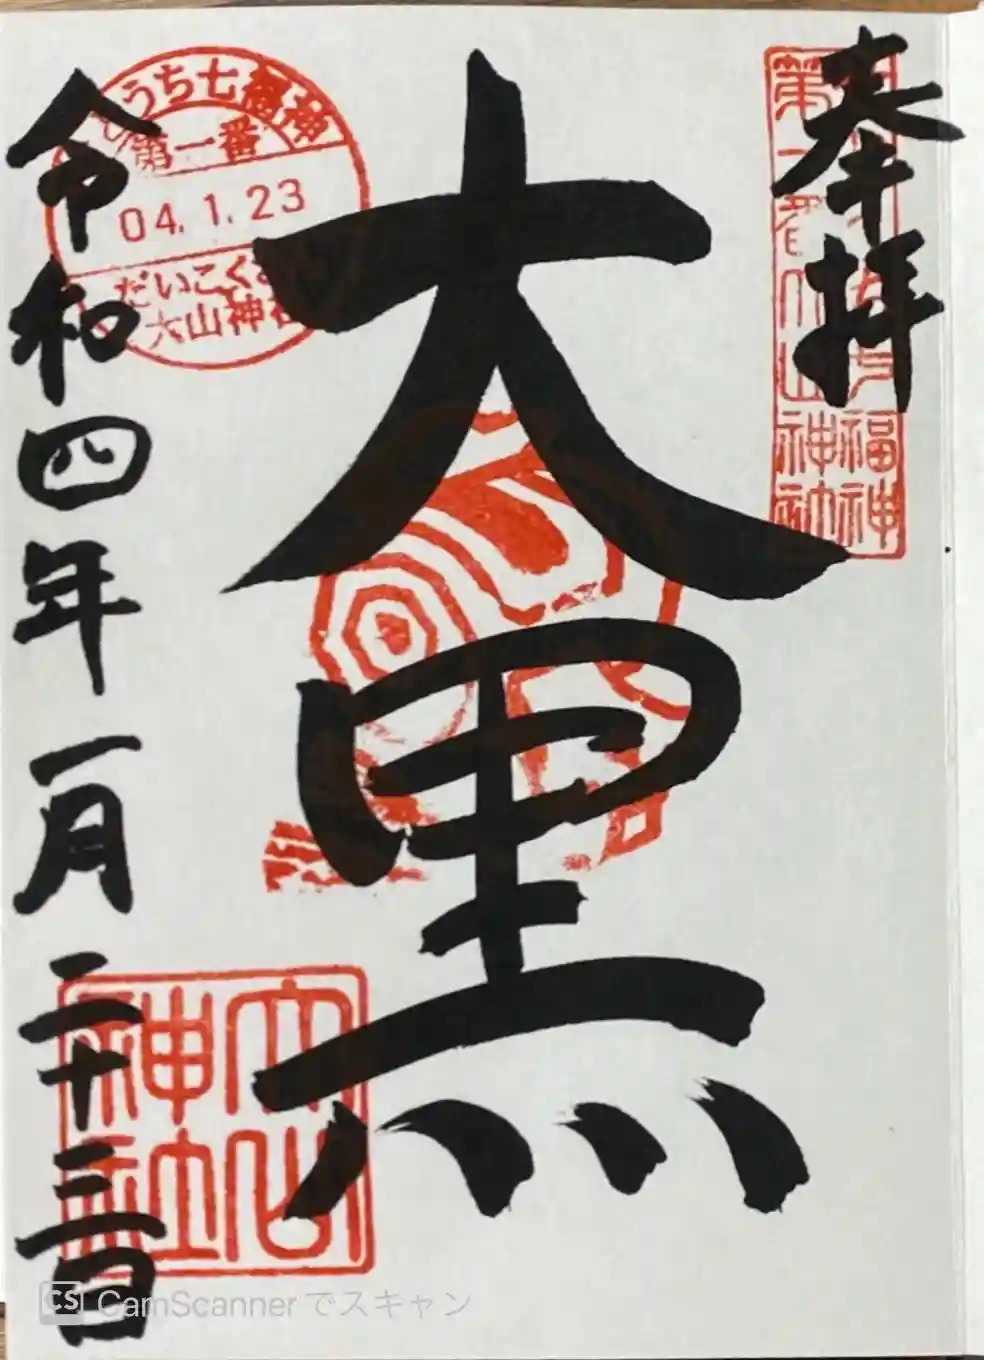 奉拝
福神
第一番
山神社
大黒
令和四年一月二十三日
うち七福神
第一番
04.1.23
だいこく
山神社
神社
CS CamScanner でスキャン